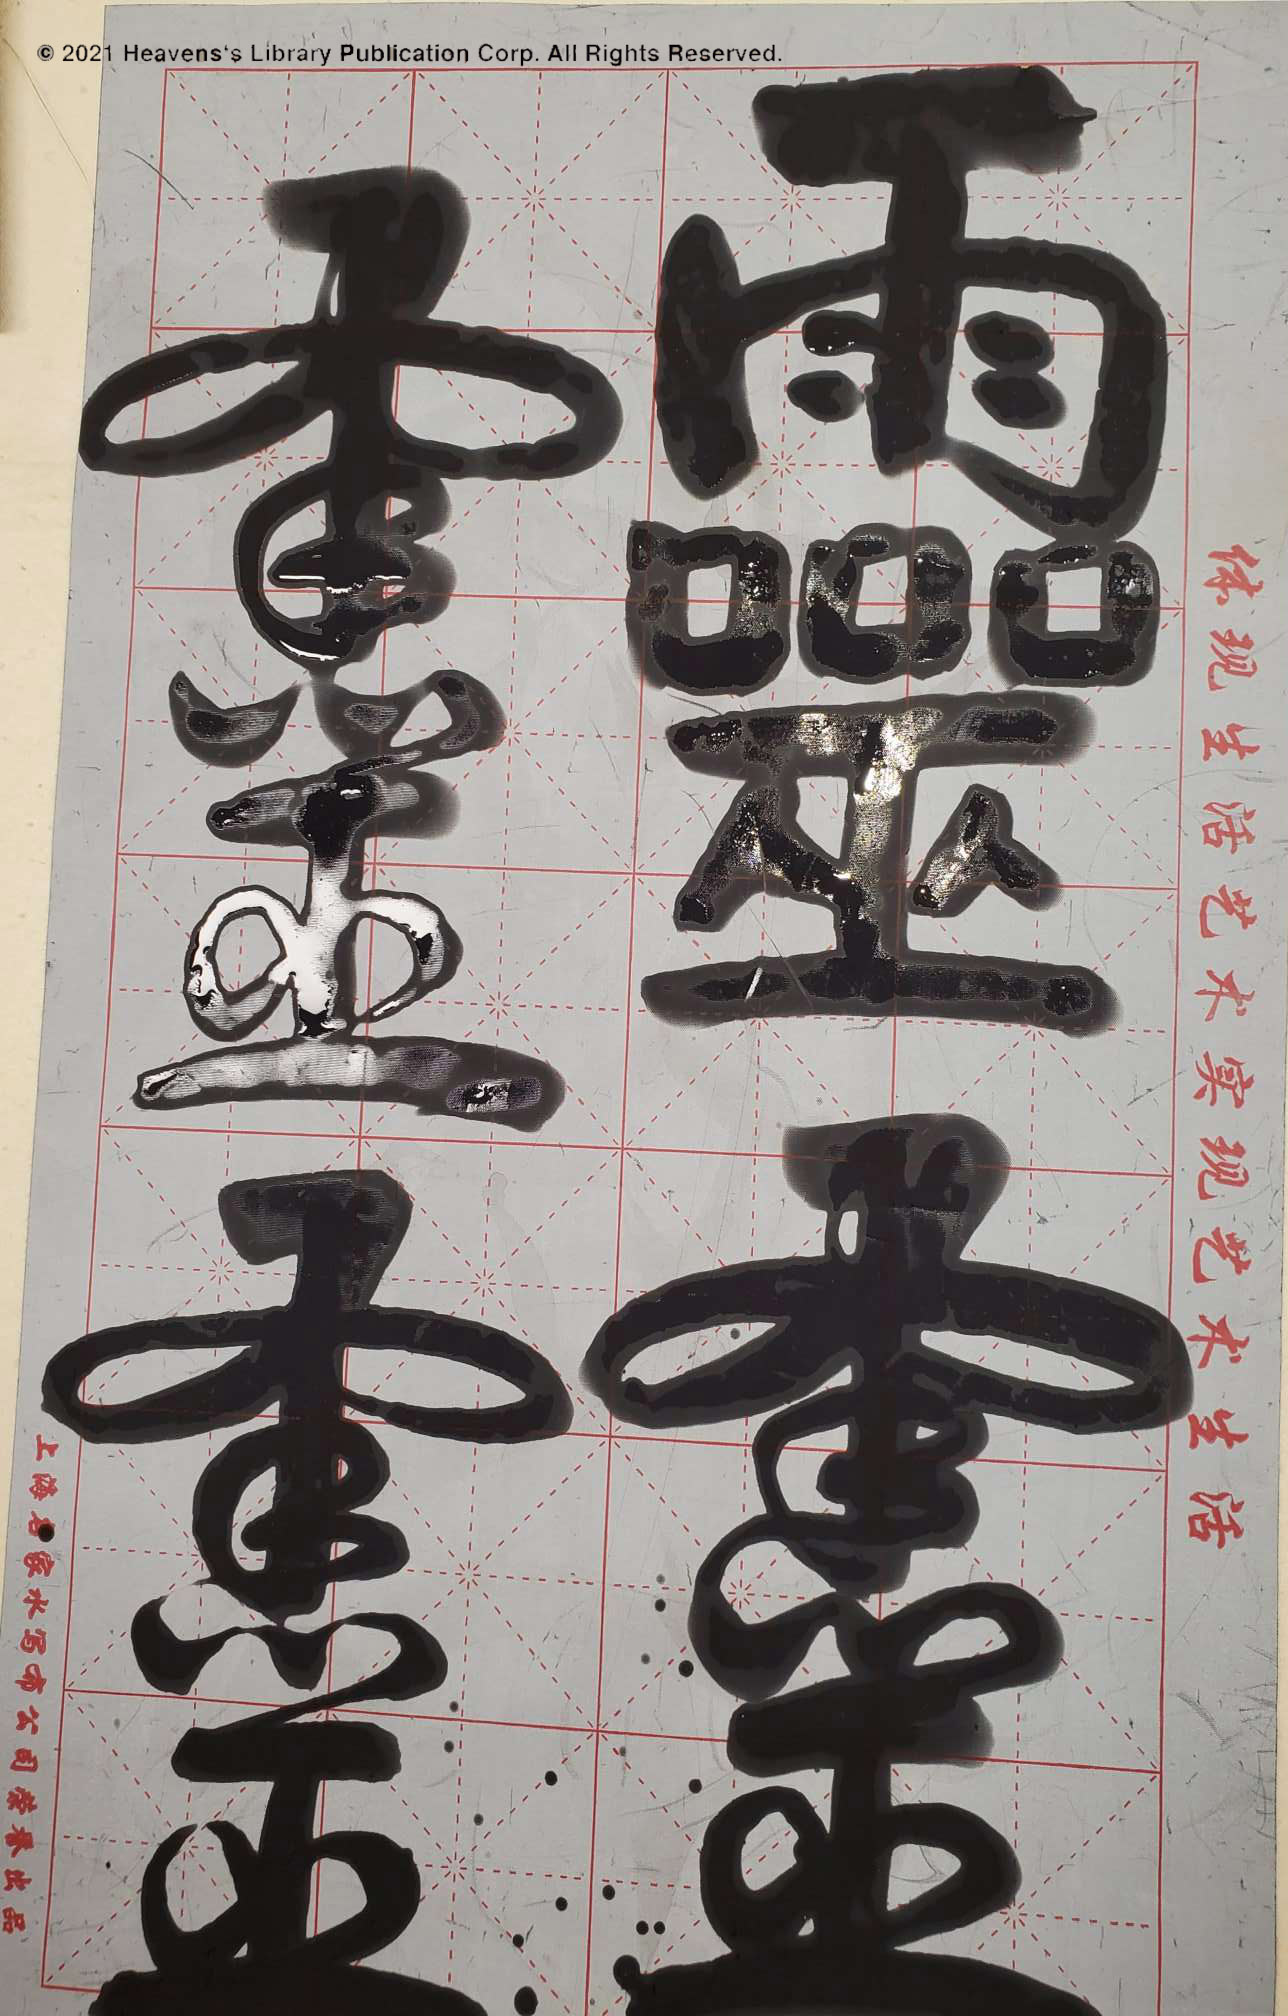 © 2021 Heavens's Library Publication Corp. All Rights Reserved.
体现生活艺术实现艺术生活
靈靈
靈靈
上海名家水写布公司荣誉出品